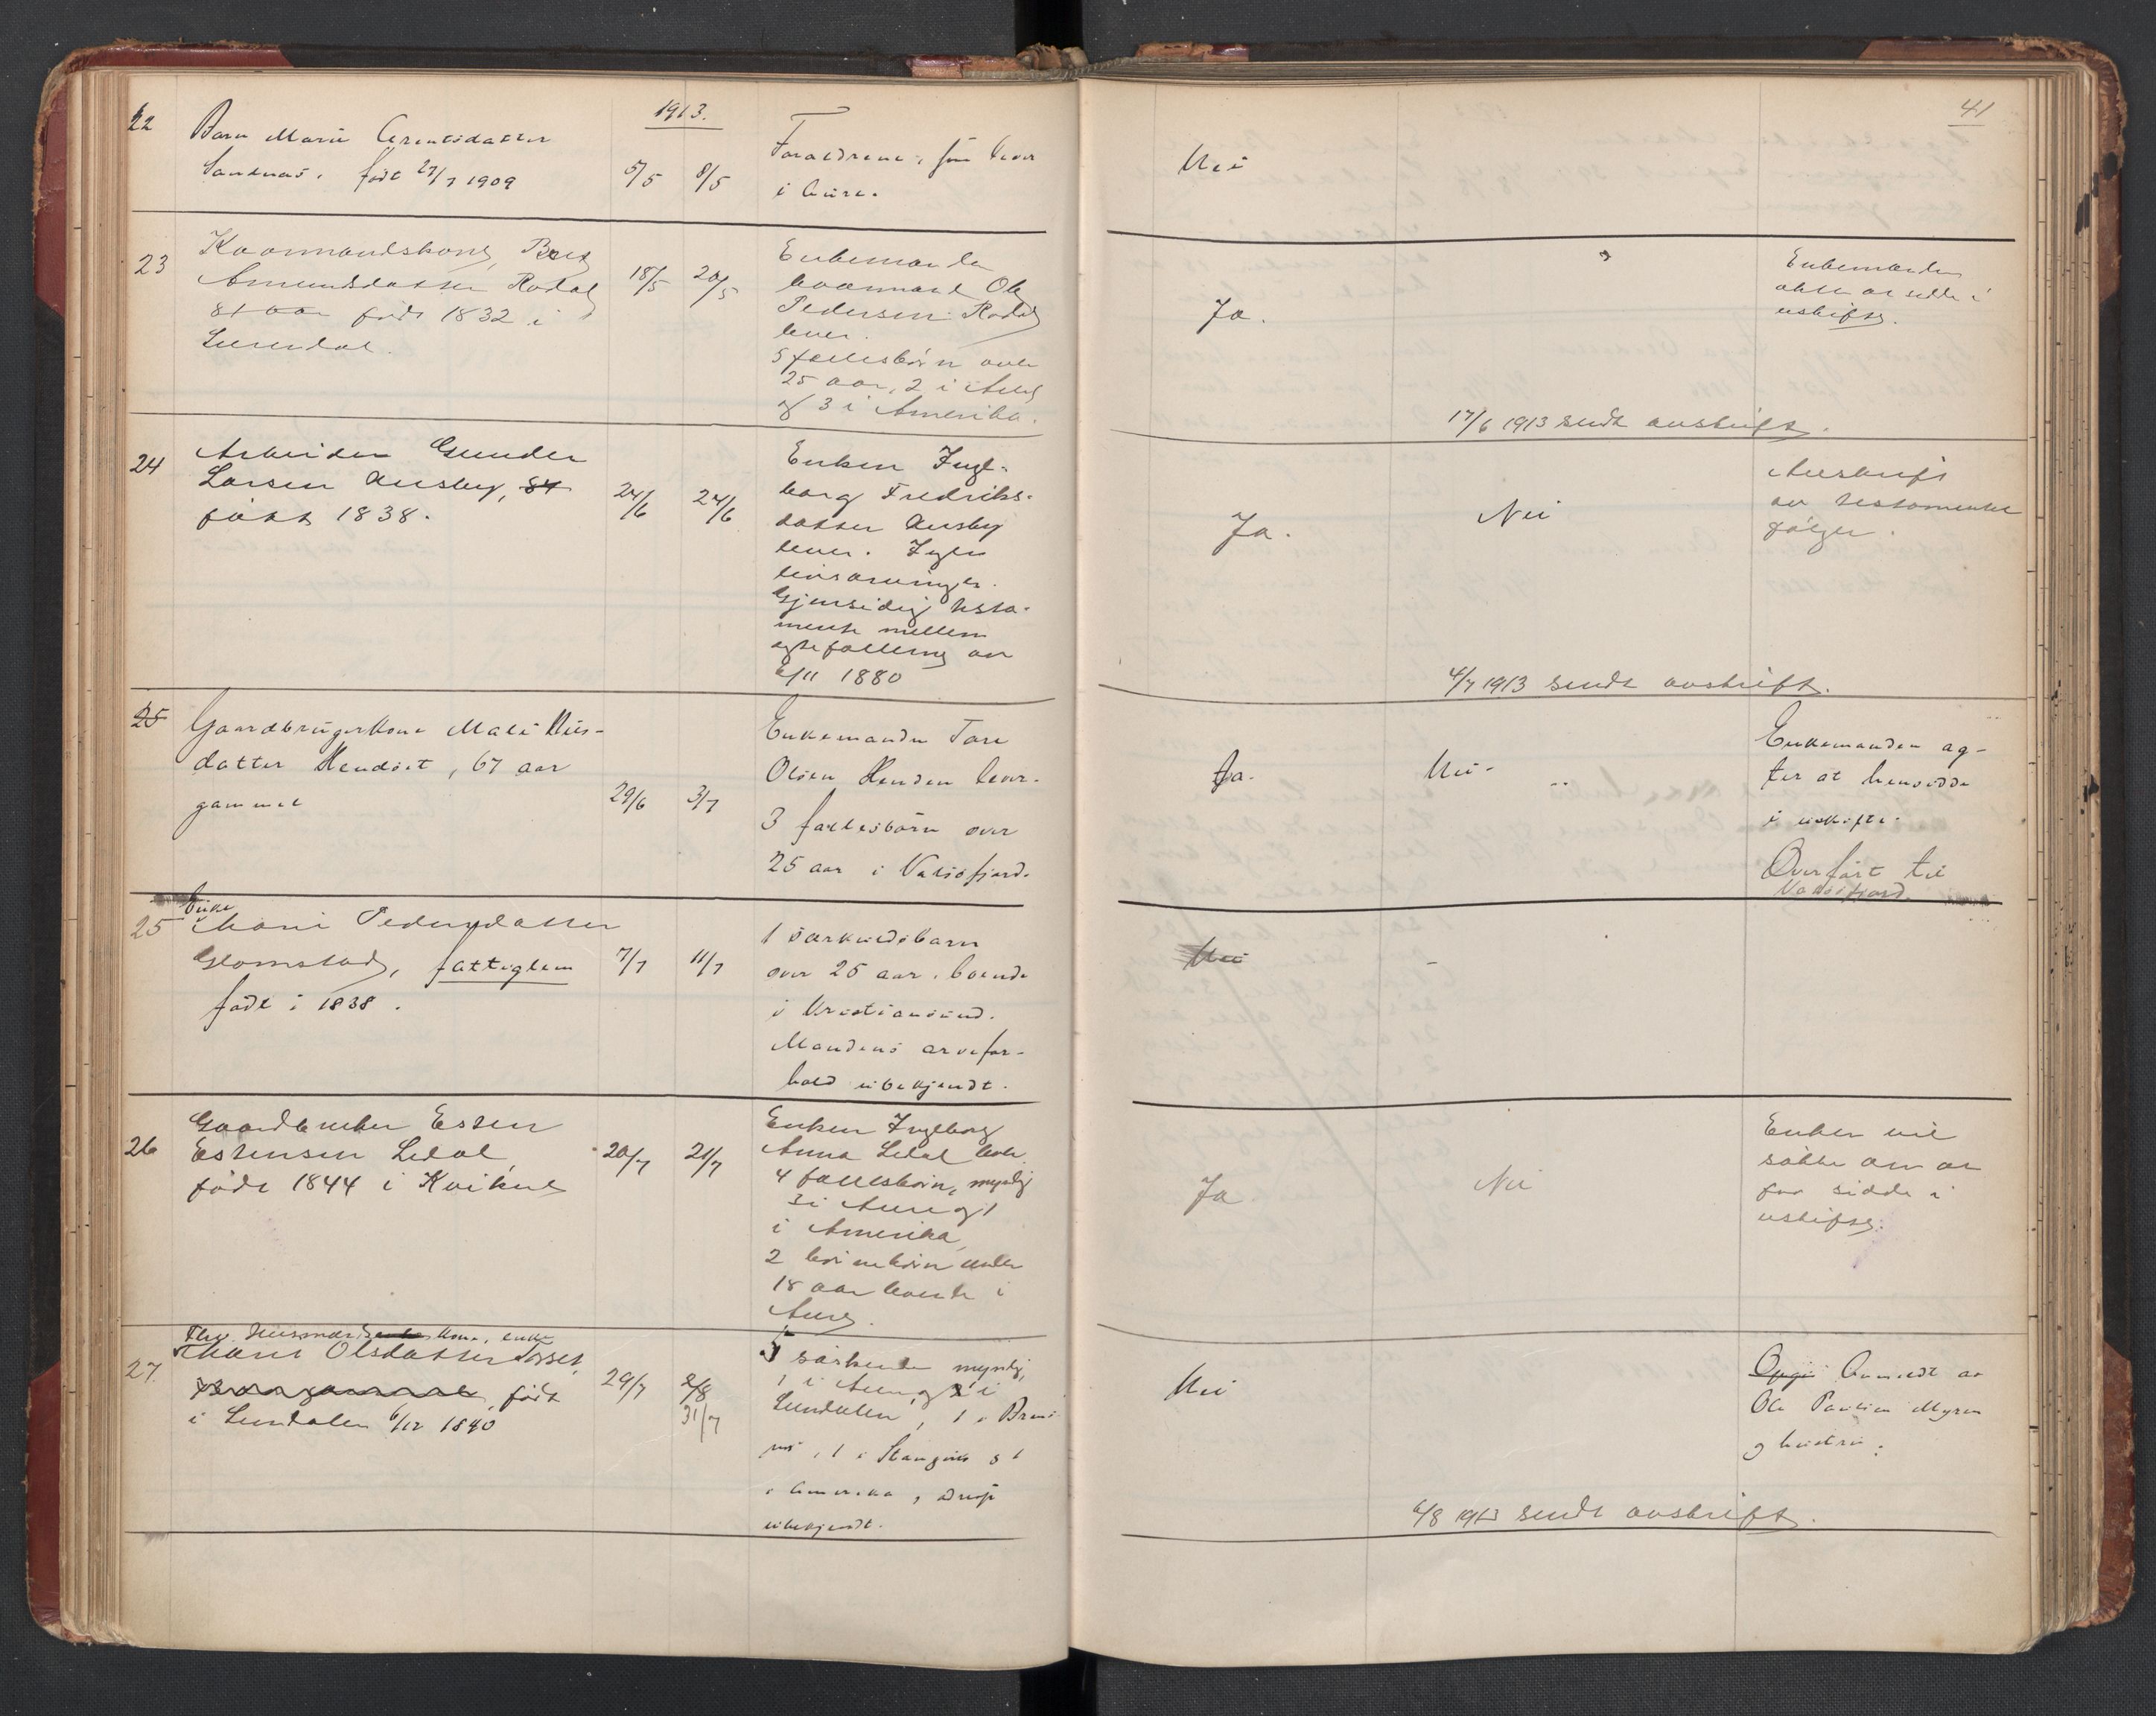 1913.
41
22 Barn Marie Arentsdatter
Sandnes. født 27/7 1909
5/5 8/5
Forældrene, som lever
i Aure.
Nei
23 Kaarmandskone, Berit
Amundsdatter Rodal
81 aar født 1832 i
Surendal.
18/5 20/5
Enkemanden
kaarmand Ole
Pedersen Rodal
lever.
5 fællesbörn over
25 aar, 2 i Aure
og 3 i Amerika.
Ja.
Enkemanden
akter at sitte i
uskifte.
17/6 1913 sendt avskrift.
24 Arbeider Gunder
Larsen Aresby, 84
født 1838.
24/6 24/6
Enken Ingе-
borg Fredriks-
datter Aresby
lever. Ingen
livsarvinger.
Gjensidig testa-
mente mellem
egtefællerne av
6/11 1880
Ja.
Nei
Avskrift
av testamentet
følger.
4/7 1913 sendt avskrift.
25 Gaardbrugerkone Mali Nils-
datter Hendset, 67 aar
gammel
29/6 3/7
Enkemanden Tore
Olsen Henden lever.
3 fællesbørn over
25 aar i Valsøfjord.
Ja.
Nei
Enkemanden ag-
ter at hensidde
i uskifte.
Overført til
Valsøfjord.
Enke
25 Marie Pedersdatter
Glomstad, fattiglem
født i 1838.
7/7 11/7
1 særkuldsbarn
over 25 aar. boende
i Kristiansund.
Mandens arvefor-
hold ubekjendt.
Nei
26 Gaardbruker Esten
Estensen Ledal,
født 1844 i Kvikne
20/7 21/7
Enken Ingeborg
Anna Ledal lever.
4 fællesbörn, myndig
3 i Aure og 1
i Amerika,
2 börnebörn under
18 aar boende i
Aure.
Ja.
Nei
Enken vil
søkke om at
faa sidde i
uskifte.
Flv. Husmandskone, enke
27. Marit Olsdatter Torset,
født
i Surndalen 6/12 1840
29/7 2/8
31/7
5 søskende myndig,
1 i Aure, og 2 i
Surndalen, 1 i Brems-
nes, 1 i Stangvik, 1
i Amerika,
ubekjendt.
Nei
Anmeldt av
Ole Paulsen Myren
og hustru.
6/8 1913 sendt avskrift.